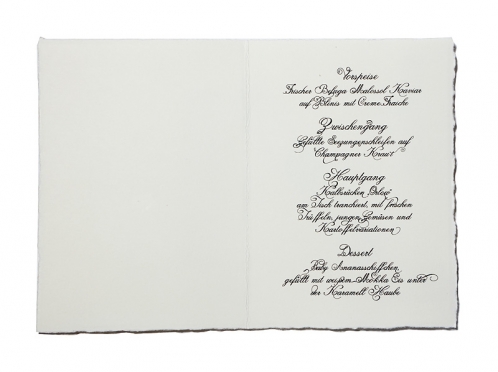 Vorspeise
Frischer Beluga Malossol Kaviar
auf Blinis mit Creme Fraiche
Zwischengang
Gefüllte Seezungenschleifen auf
Champagner Kraut
Hauptgang
Kalbsrücken „Orlow“
am Tisch tranchiert, mit frischen
Trüffeln, jungen Gemüsen und
Kartoffelvariationen
Dessert
Baby Ananasschiffchen,
gefüllt mit weißem Mokka Eis unter
der Karamell Haube